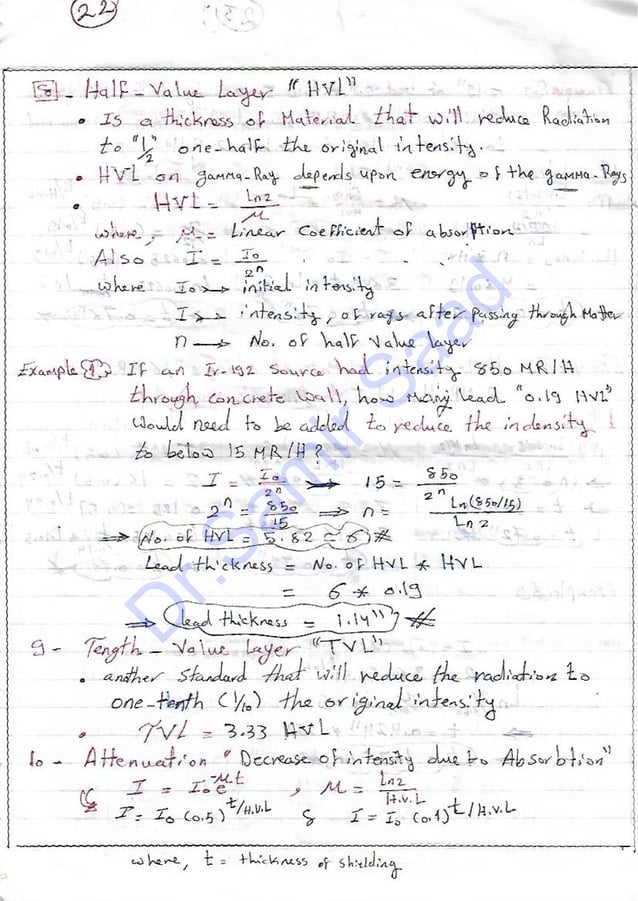 (22)
8 - Half-Value Layer "HVL"
• Is a thickness of Material that will reduce Radiation
to "1/2" one-half the original intensity.
• HVL on gamma-Ray depends upon energy of the gamma-Rays
• HVL = Ln2/μ
where, μ = Linear Coefficient of absorption
Also I = I0/2^n
where I0 → initial intensity
I → intensity, of rays after Passing through Matter
n → No. of half Value layer
Example 1 If an Ir-192 source had intensity 850 MR/H
through concrete wall, how many lead "0.19 HVL"
would need to be added to reduce the indensity
to below 15 MR/H?
I = I0/2^n ⇒ 15 = 850/2^n
2^n = 850/15 ⇒ n = Ln(850/15)/Ln2
⇒ No. of HVL = 5.82 ≃ 6 #
Lead thickness = No. of HVL * HVL
= 6 * 0.19
⇒ lead thickness = 1.14" #
9 - Tength-Value Layer "TVL"
• another standard that will reduce the radiation to
one-tenth (1/10) the original intensity
• TVL = 3.33 HVL
10 - Attenuation "Decrease of intensity due to Absorbtion"
I = I0 e^-μt , μ = Ln2/H.V.L
I = I0 (0.5)^t/H.V.L & I = I0 (0.1)^t/H.V.L
where, t = thickness of shielding
Dr. Samir Saad